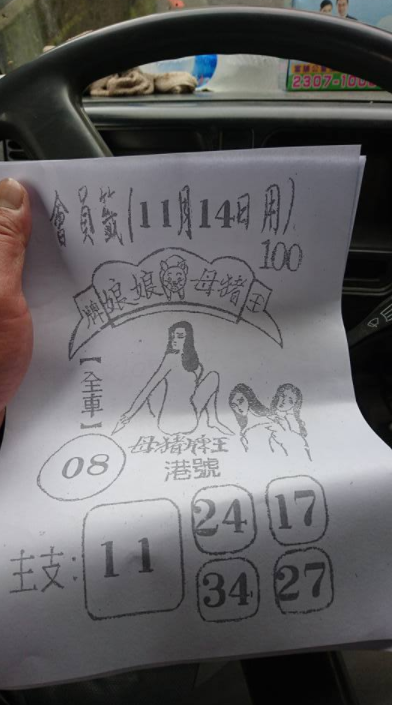 2307-100
會員籤(11月14日用)
100
牌娘娘母豬王
【全車】
08
母豬牌王
港號
主支: 11 24 17
34 27